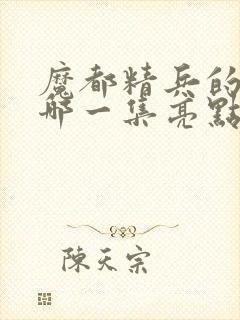 魔都精兵的
哪一集亮點
陳天宗